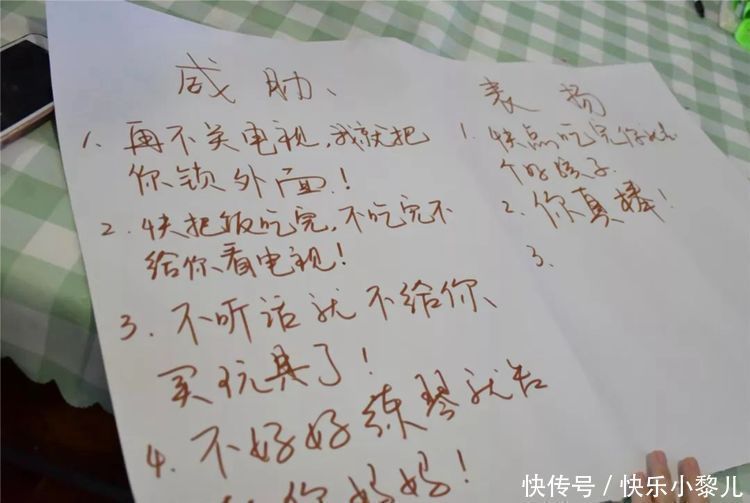 威胁、
1、再不关电视,我就把
你锁外面!
2、快把饭吃完,不吃完不
给你看电视!
3、不听话就不给你、
买玩具了!
4、不好好练琴就告
你妈妈!
表扬
1、快点吃完你就是
个好孩子.
2、你真棒!
3、
快传号/快乐小黎儿